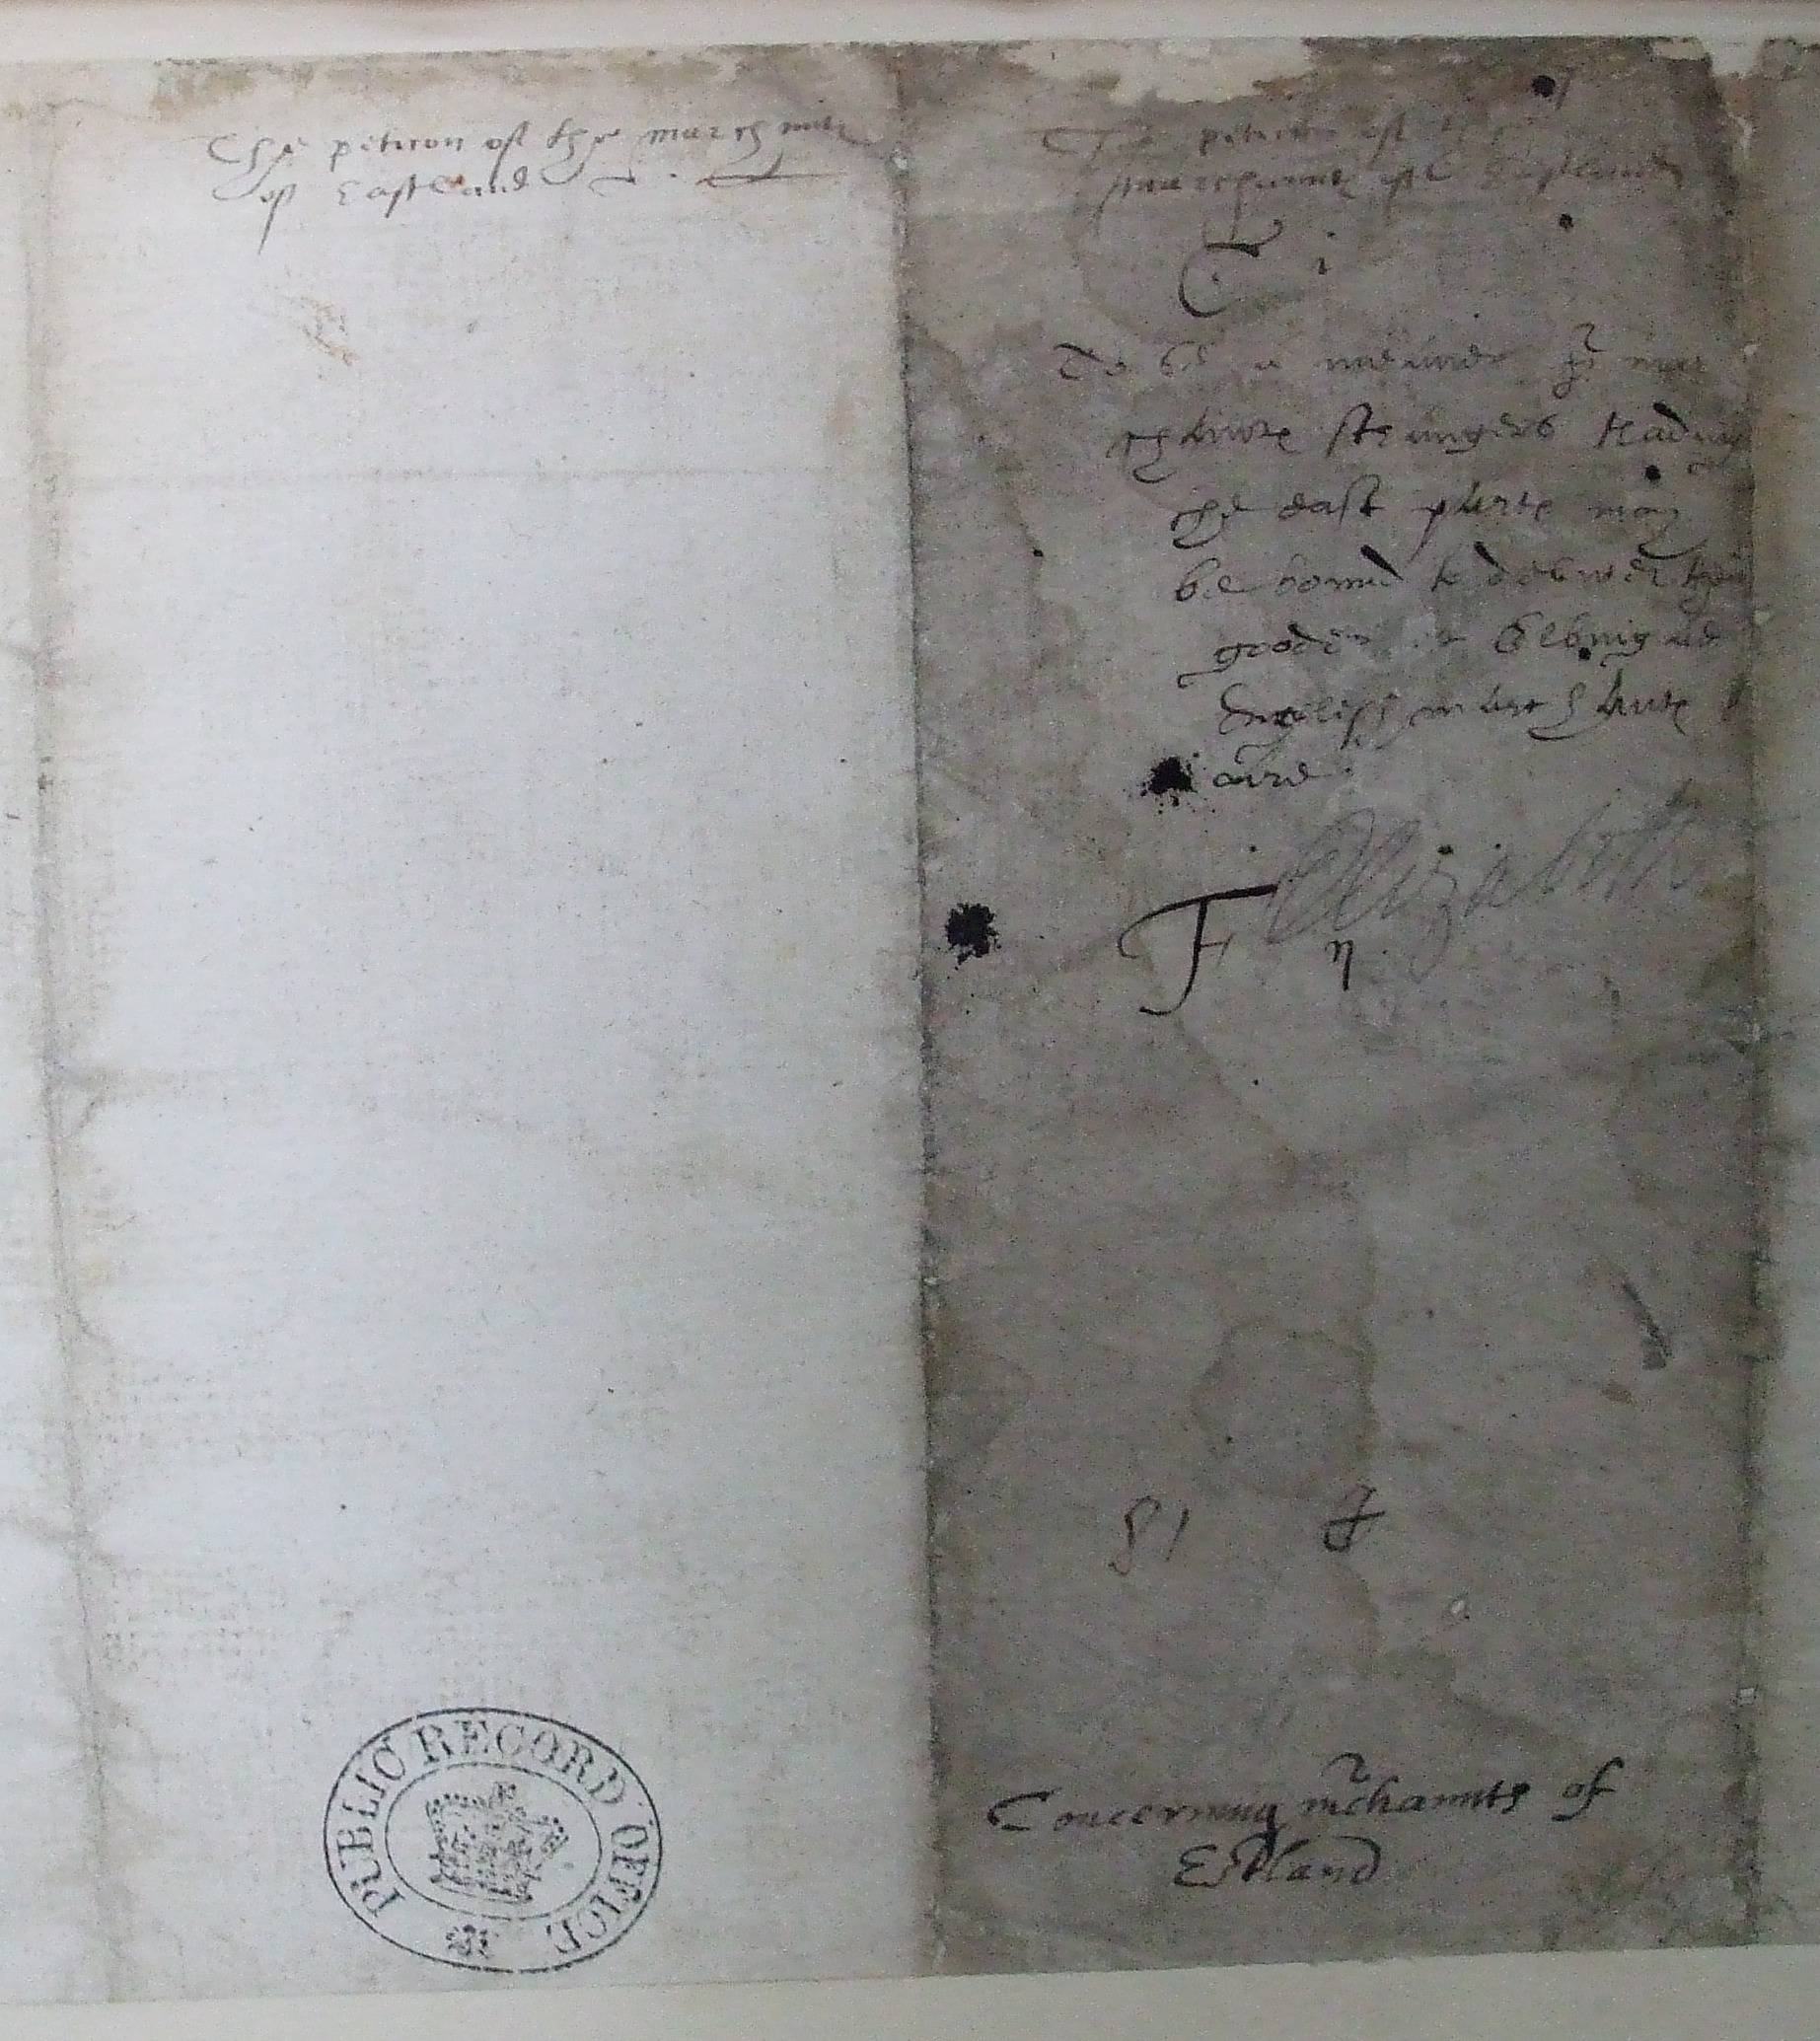 The peticon of the marchauntes
of Eastland
The peticon of the
marchauntes of Eastland
T i
To be a meane yt mar
chauntes strangers trading
the east partes may
be bound to deliver their
goodes Elbing as
English marchauntes
are
Elizabeth
F η
81
Concerning mrchaunts of
Estland
PUBLIC RECORD OFFICE